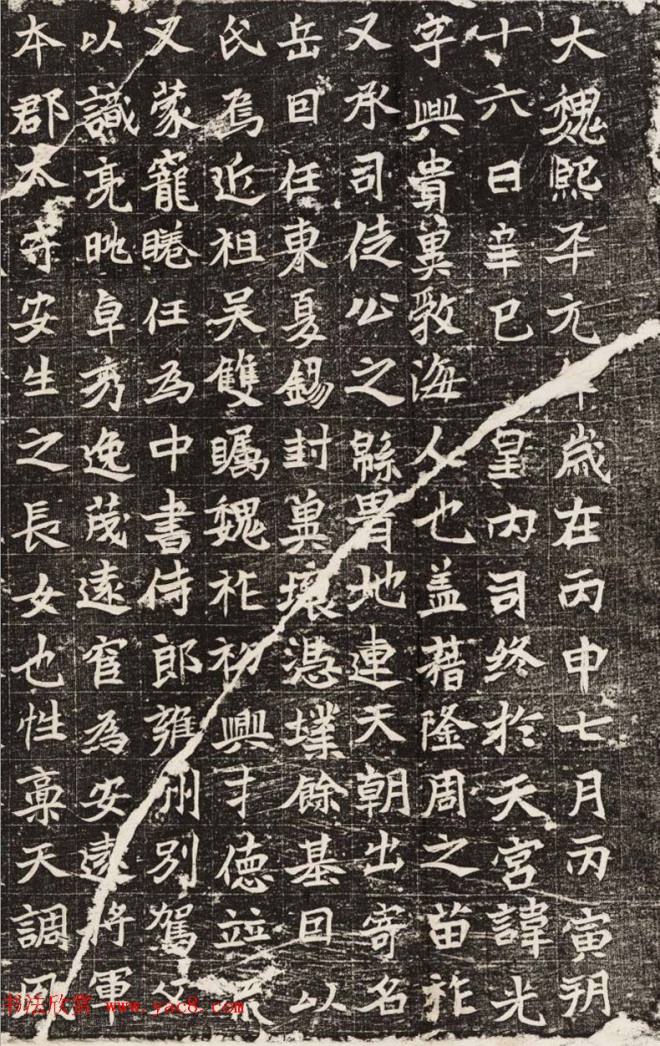 大魏熙平元年歲在丙申七月丙寅朔
十六日辛巳 皇內司終於天宮諱光
字興貴冀敦海人也蓋藉隆周之苗祚
又承司徒公之緜胄地連天朝出寄名
岳囙任東夏錫封冀壤憑墣餘基囙以
氏焉近祖吳雙矚魏祚初興才德竝
又蒙寵睠任為中書侍郎雍州別駕
以識亮眺卓秀逸茂遠官為安遠將軍
本郡太守安生之長女也性稟天調
书法欣赏 www.yac8.com